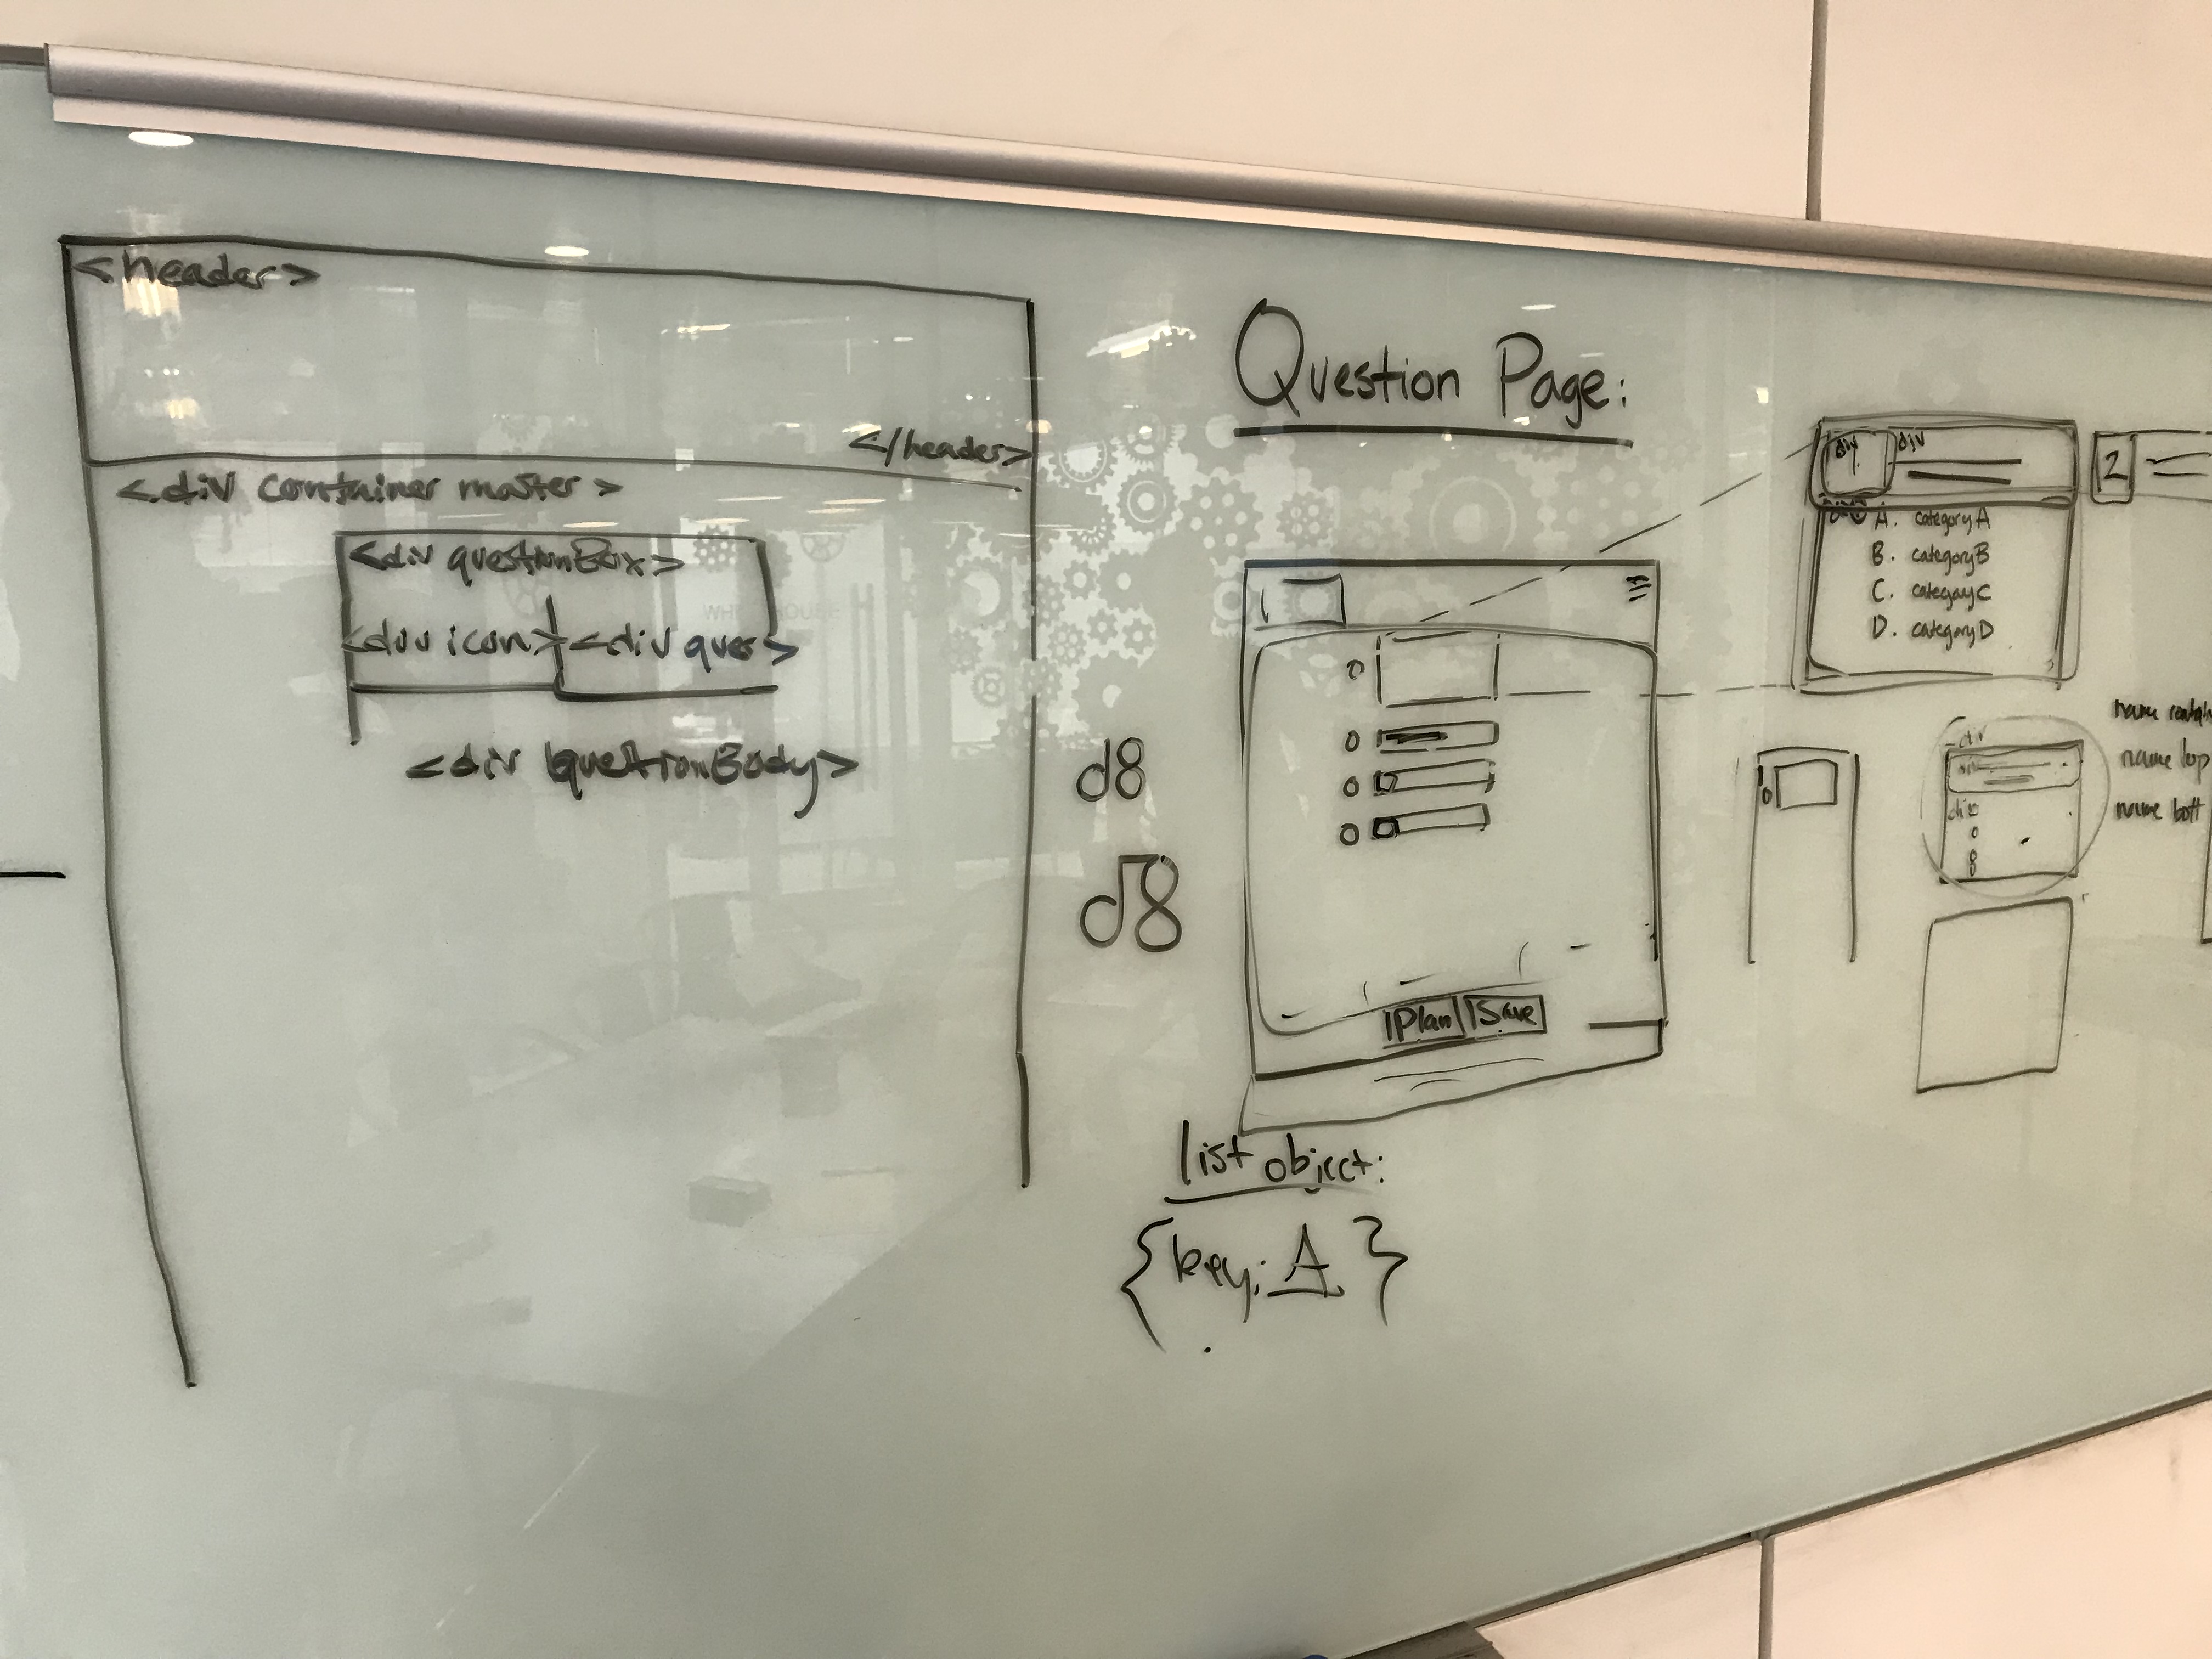 <header>
</header>
<div container master>
<div questionBox>
<div icon> <div ques>
<div questionBody>
d8
d8
Question Page:
Plan Save
list object:
{key: A}
div div
A. category A
B. category B
C. category C
D. category D
2
div
div
name
name top
name bott